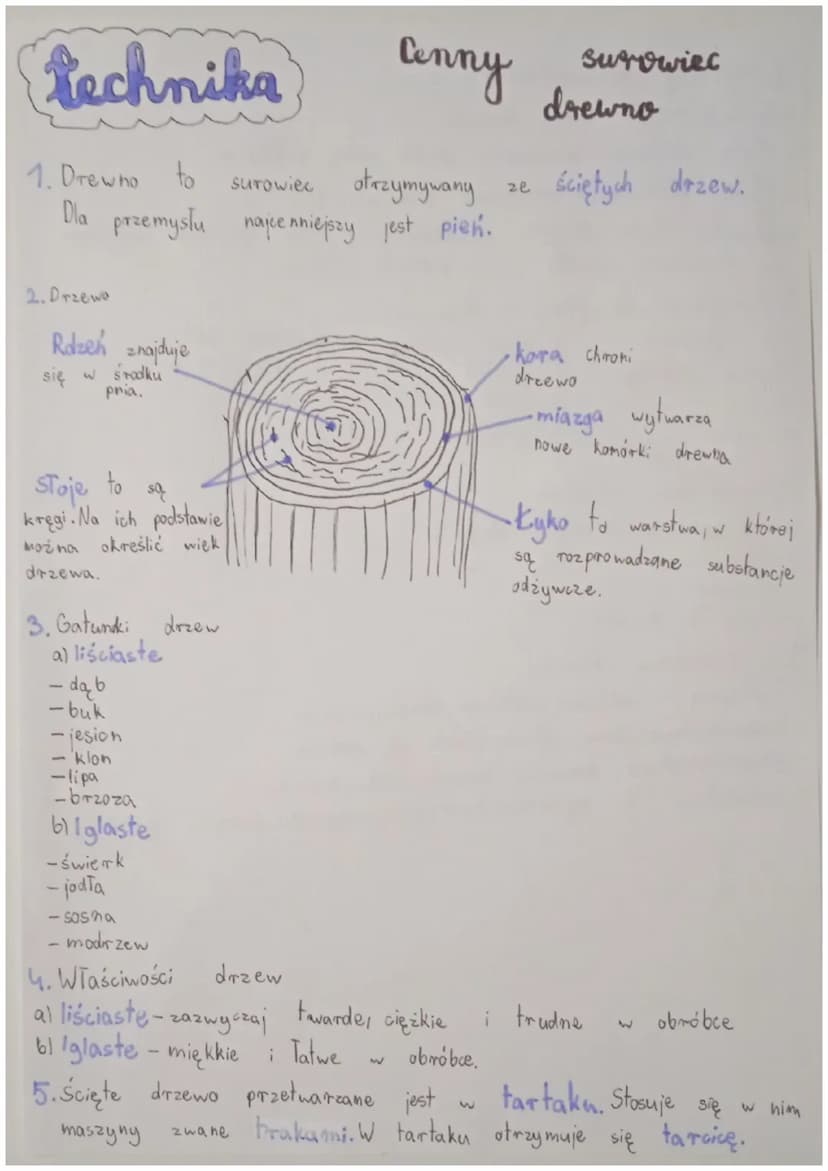 technika
Cenny surowiec
drewno
1. Drewno to surowiec otrzymywany ze ściętych drzew.
Dla przemysłu najcenniejszy jest pień.
2. Drzewo
Rdzeń znajduje
się w środku
pnia.
kora chroni
drzewo
miazga wytwarza
nowe komórki drewna
Słoje to są
kręgi. Na ich podstawie
można określić wiek
drzewa.
Łyko to warstwa, w której
są rozprowadzane substancje
odżywcze.
3. Gatunki drzew
a) liściaste
- dąb
- buk
- jesion
- klon
- lipa
- brzoza
b) Iglaste
- świerk
- jodła
- sosna
- modrzew
4. Właściwości drzew
a) liściaste - zazwyczaj twarde, ciężkie i trudne w obróbce
b) Iglaste - miękkie i łatwe w obróbce.
5. Ścięte drzewo przetwarzane jest w tartaku. Stosuje się w nim
maszyny zwane trakami. W tartaku otrzymuje się tarcicę.